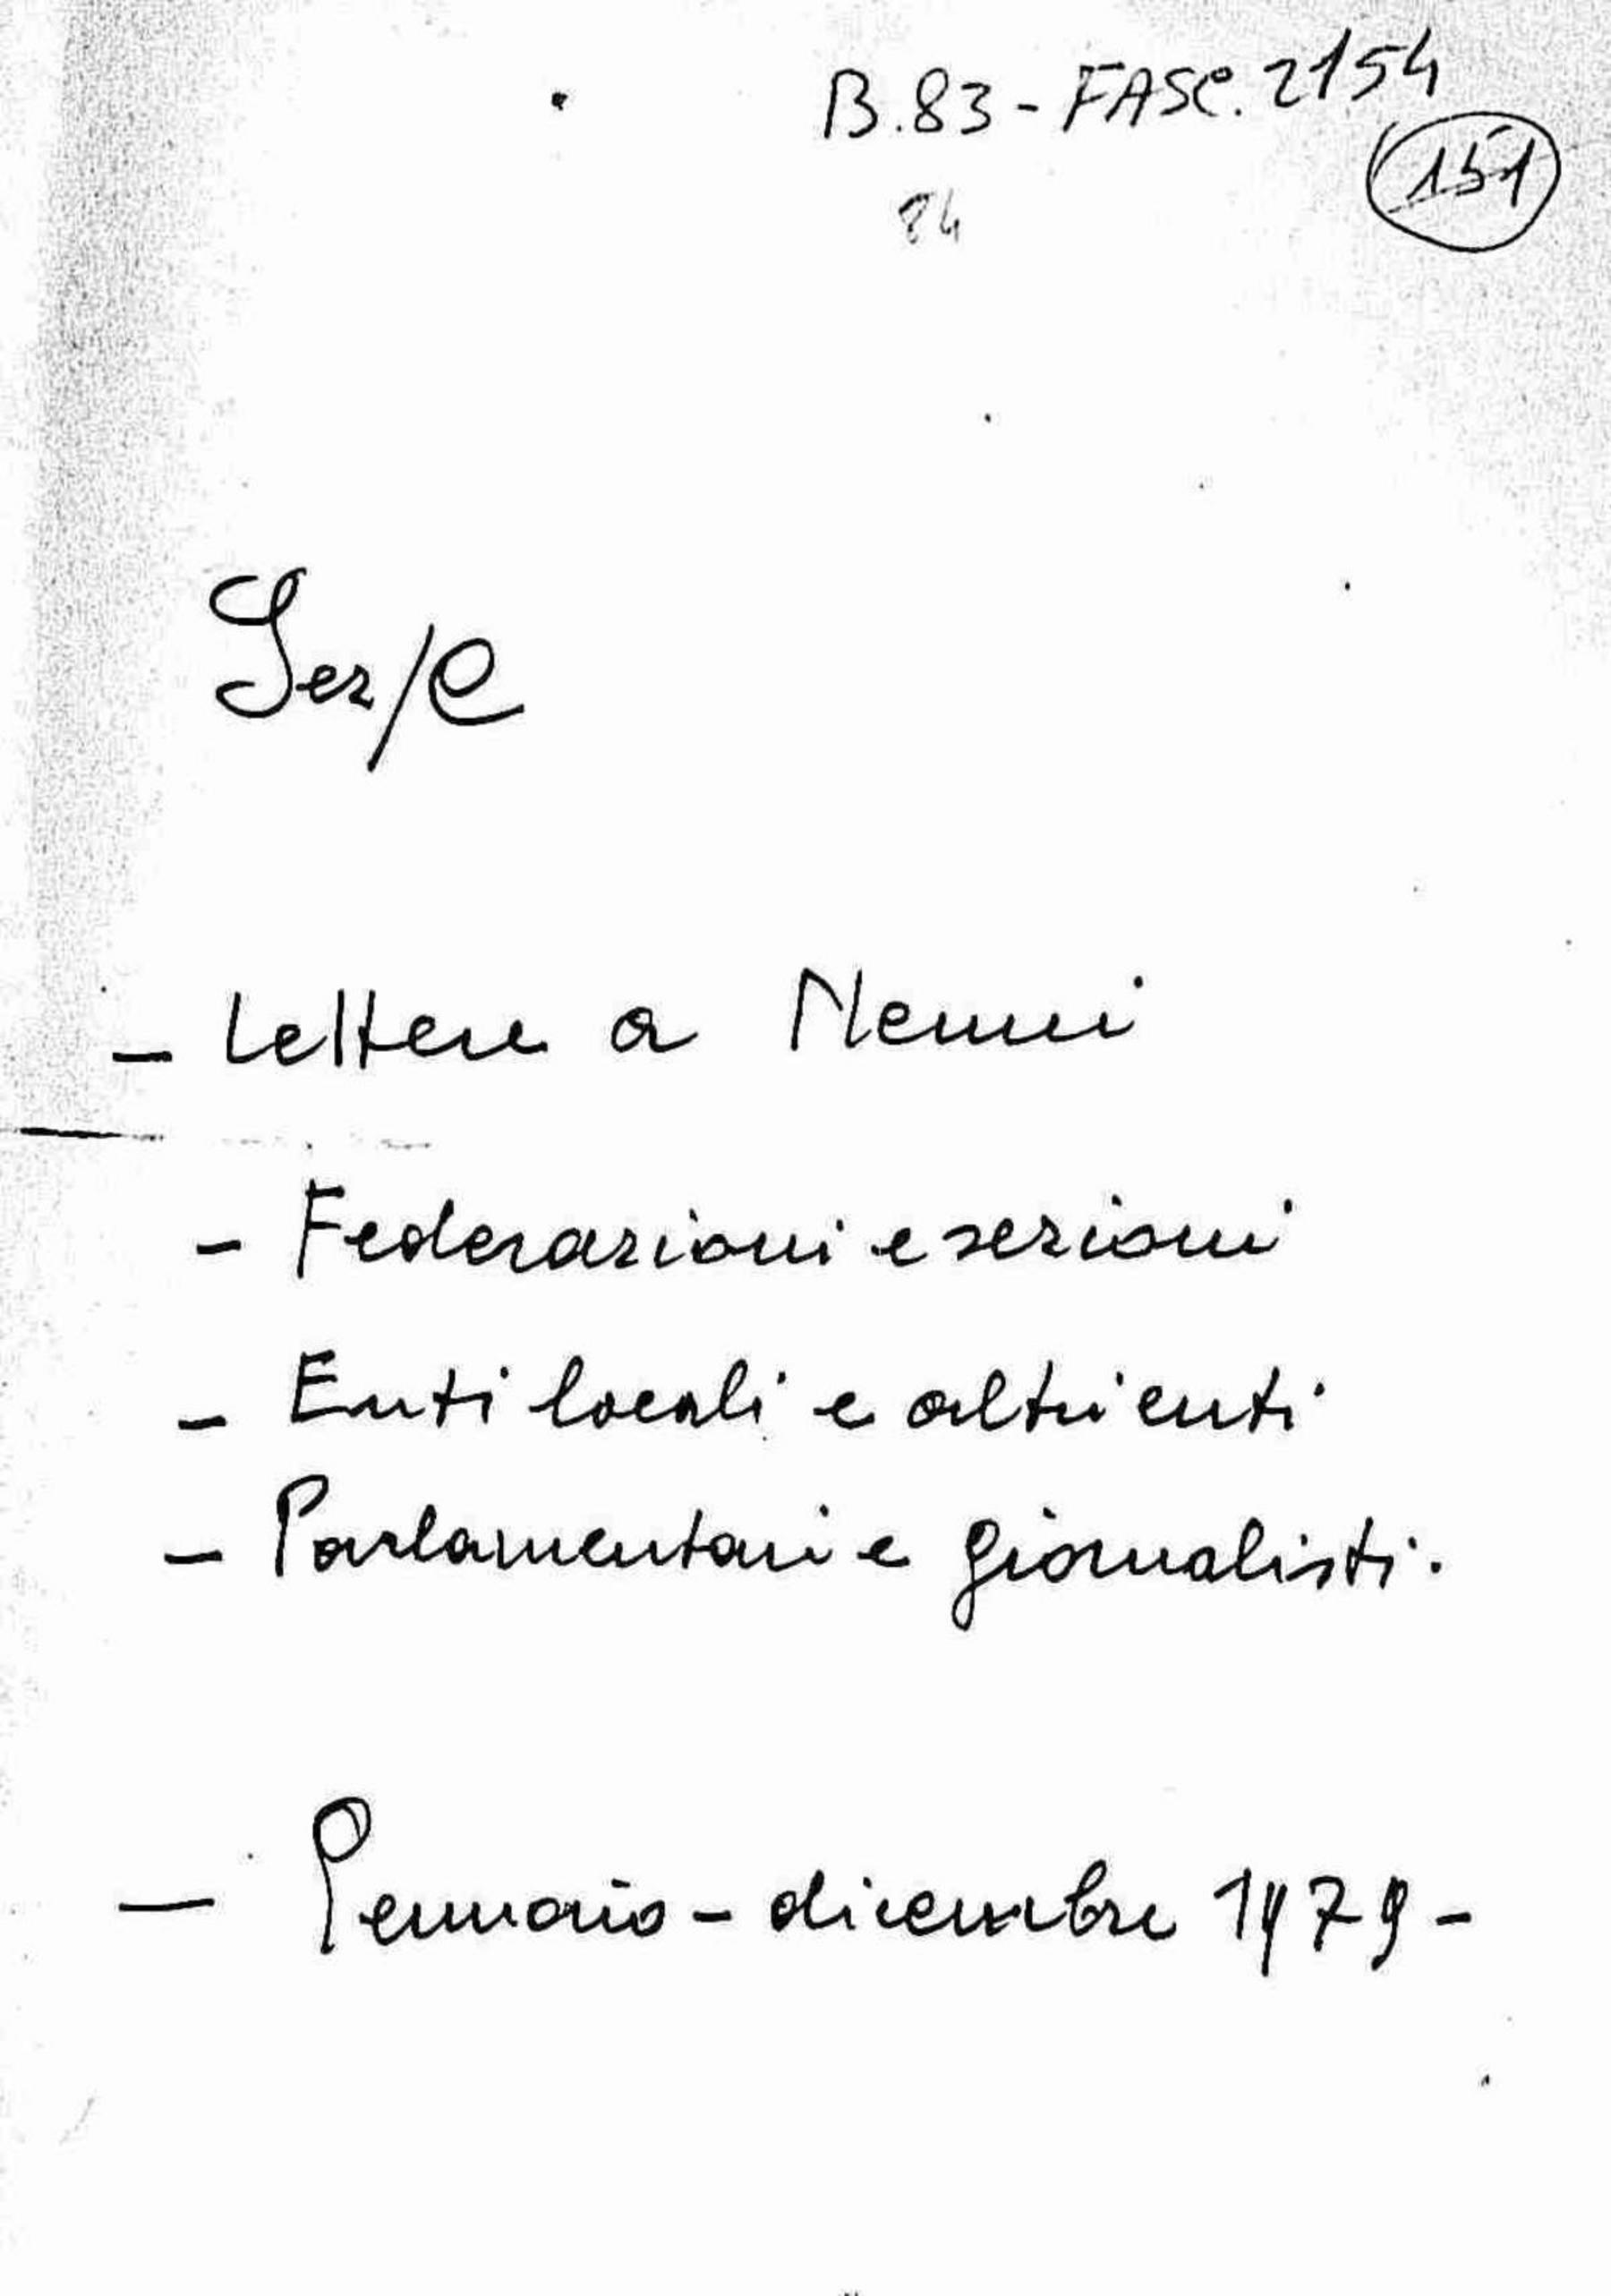 B.83 - FASC. 2154
151
84
Ser/C
- Lettere a Nenni
- Federazioni e sezioni
- Enti locali e altri enti
- Parlamentari e giornalisti.
- Gennaio - dicembre 1979 -